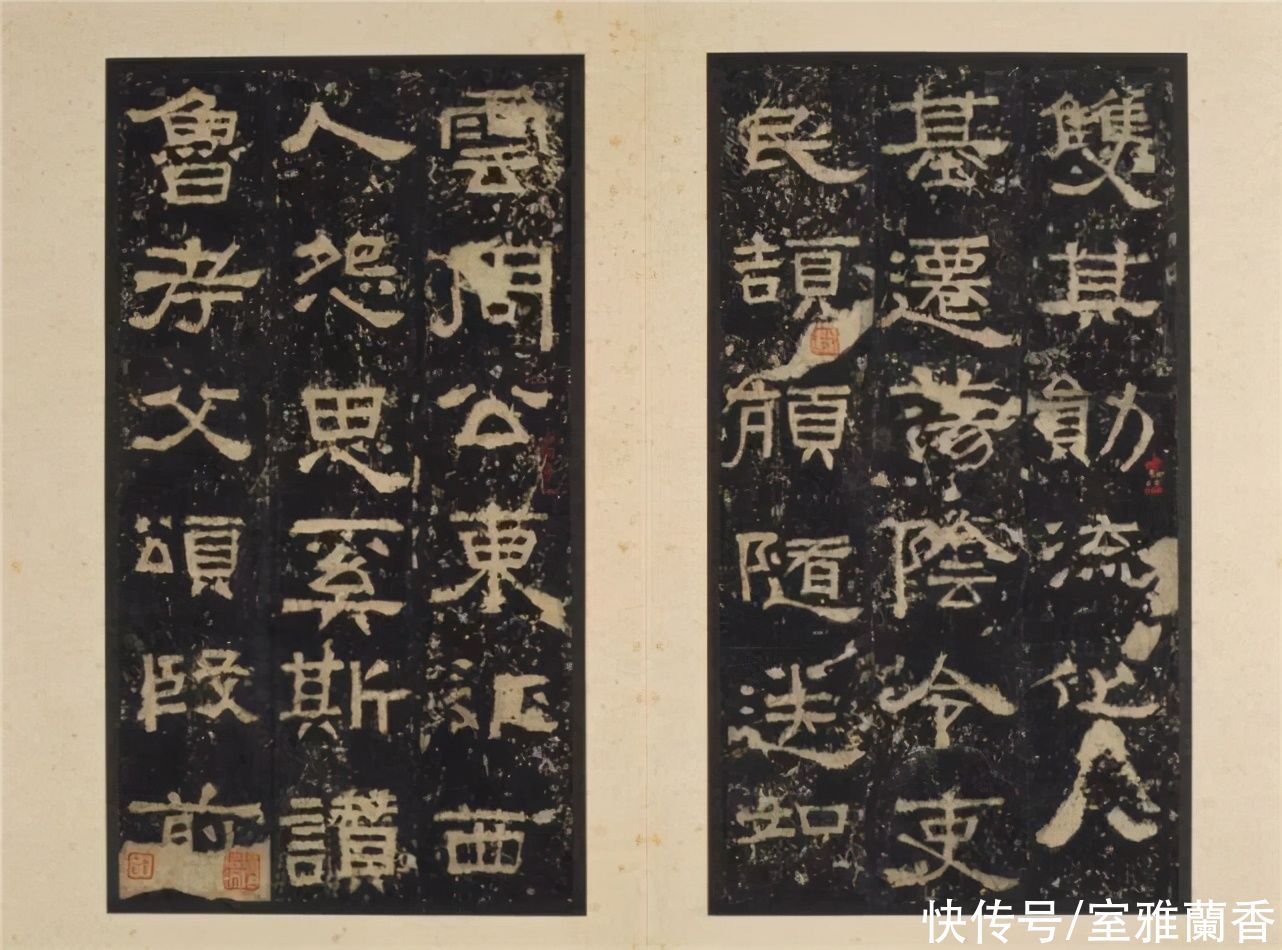 雙其勛流化八
基遷蕩陰令吏
民頡頏隨送如
雲周公東征西
人怨思奚斯讚
魯考父頌殷前
快传号/室雅蘭香